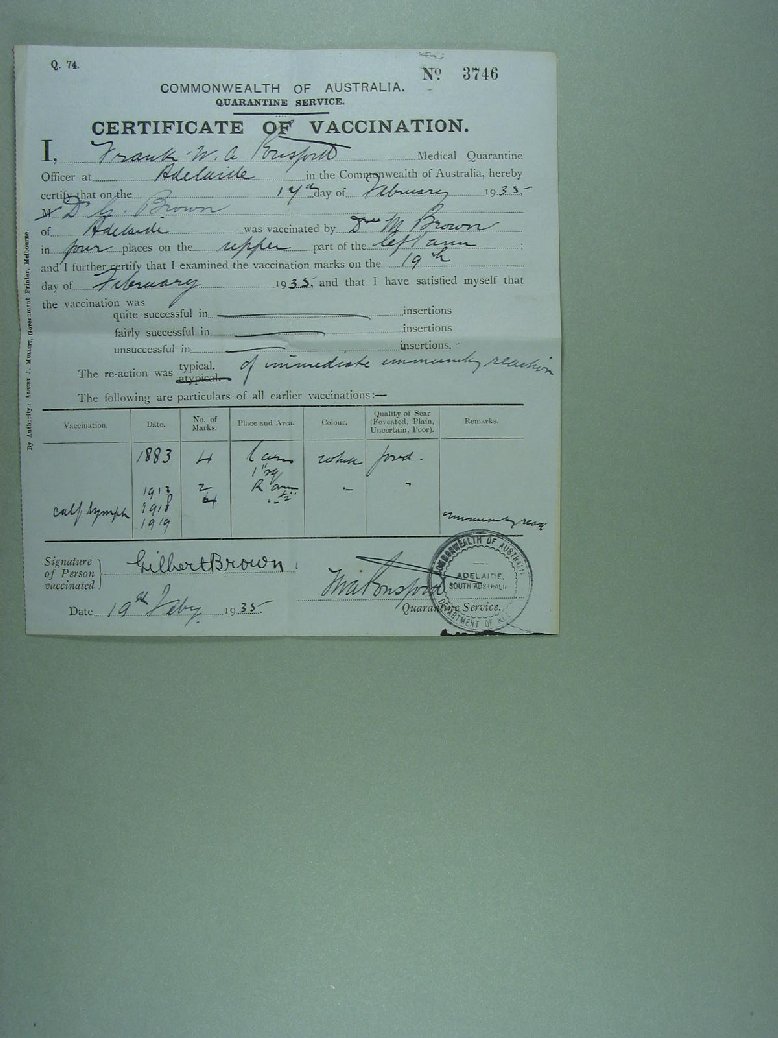 Q. 74.
No 3746
COMMONWEALTH OF AUSTRALIA.
QUARANTINE SERVICE.
CERTIFICATE OF VACCINATION.
I, Frank W. A Ponsford Medical Quarantine
Officer at Adelaide in the Commonwealth of Australia, hereby
certify that on the 17th day of February 1935
M Dr G. Brown
of Adelaide was vaccinated by Dr M Brown
in four places on the upper part of the left arm
and I further certify that I examined the vaccination marks on the 19th
day of February 1935, and that I have satisfied myself that
the vaccination was
quite successful in insertions
fairly successful in insertions
unsuccessful in insertions.
The re-action was typical. atypical. of immediate immunity reaction
The following are particulars of all earlier vaccinations:—
Vaccination. Date. No. of Marks. Place and Area. Colour. Quality of Scar Foveated, Plain, Uncertain, Poor). Remarks.
1883 4 L arm white fovd.
1913 2 R arm " "
calf lymph 1918 4
1919
Signature of Person vaccinated } Gilbert Brown
Date 19th Feby 1935
FWAPonsford
Quarantine Service.
COMMONWEALTH OF AUSTRALIA
ADELAIDE,
SOUTH AUSTRALIA
DEPARTMENT OF
By Authority: Government Printer, Melbourne